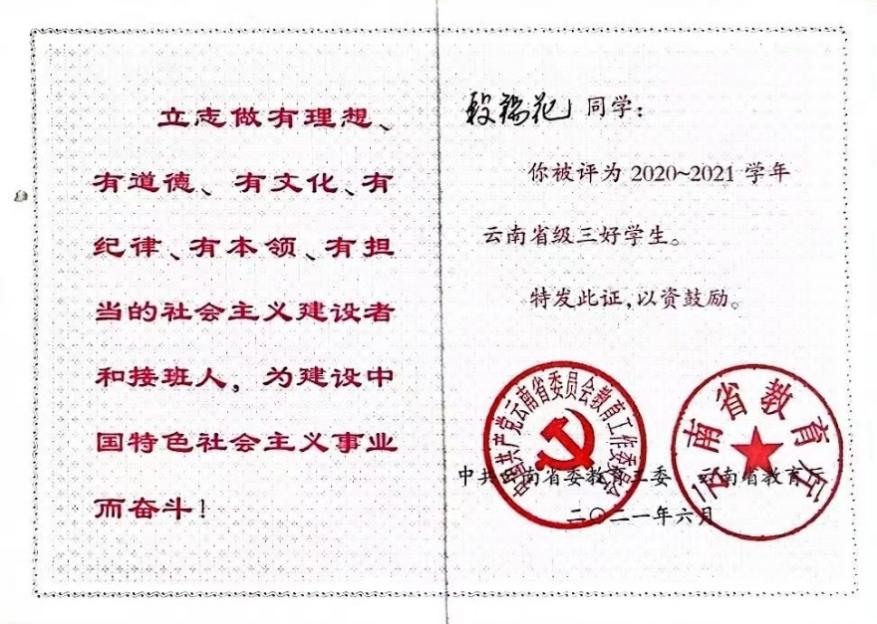 立志做有理想、
有道德、有文化、有
纪律、有本领、有担
当的社会主义建设者
和接班人，为建设中
国特色社会主义事业
而奋斗！
同学：
你被评为 2020~2021 学年
云南省级三好学生。
特发此证，以资鼓励。
中国共产党云南省委员会教育工作委员会
云南省教育厅
中共云南省委教育工委 云南省教育厅
二〇二一年六月